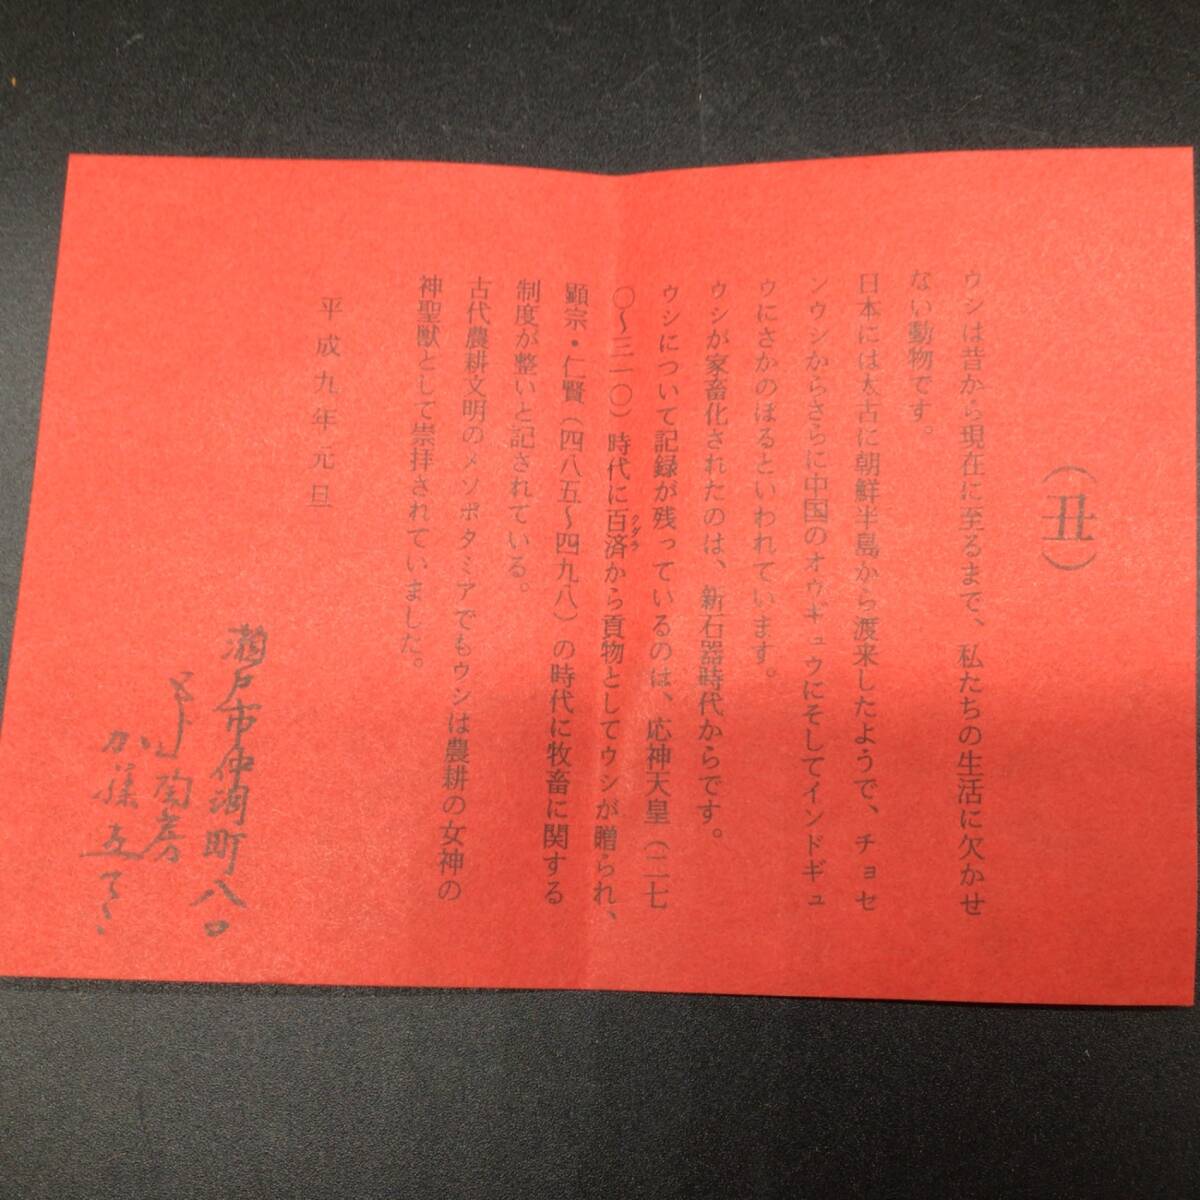 （丑）
ウシは昔から現在に至るまで、私たちの生活に欠かせ
ない動物です。
日本には太古に朝鮮半島から渡来したようで、チョセ
ンウシからさらに中国のオウギュウにそしてインドギュ
ウにさかのぼるといわれています。
ウシが家畜化されたのは、新石器時代からです。
ウシについて記録が残っているのは、応神天皇（二七
〇〜三一〇）時代に百済から貢物としてウシが贈られ、
クダラ
顕宗・仁賢（四八五〜四九八）の時代に牧畜に関する
制度が整いと記されている。
古代農耕文明のメソポタミアでもウシは農耕の女神の
神聖獣として崇拝されていました。
平成九年元旦
瀬戸市仲洞町八
陶房
加藤